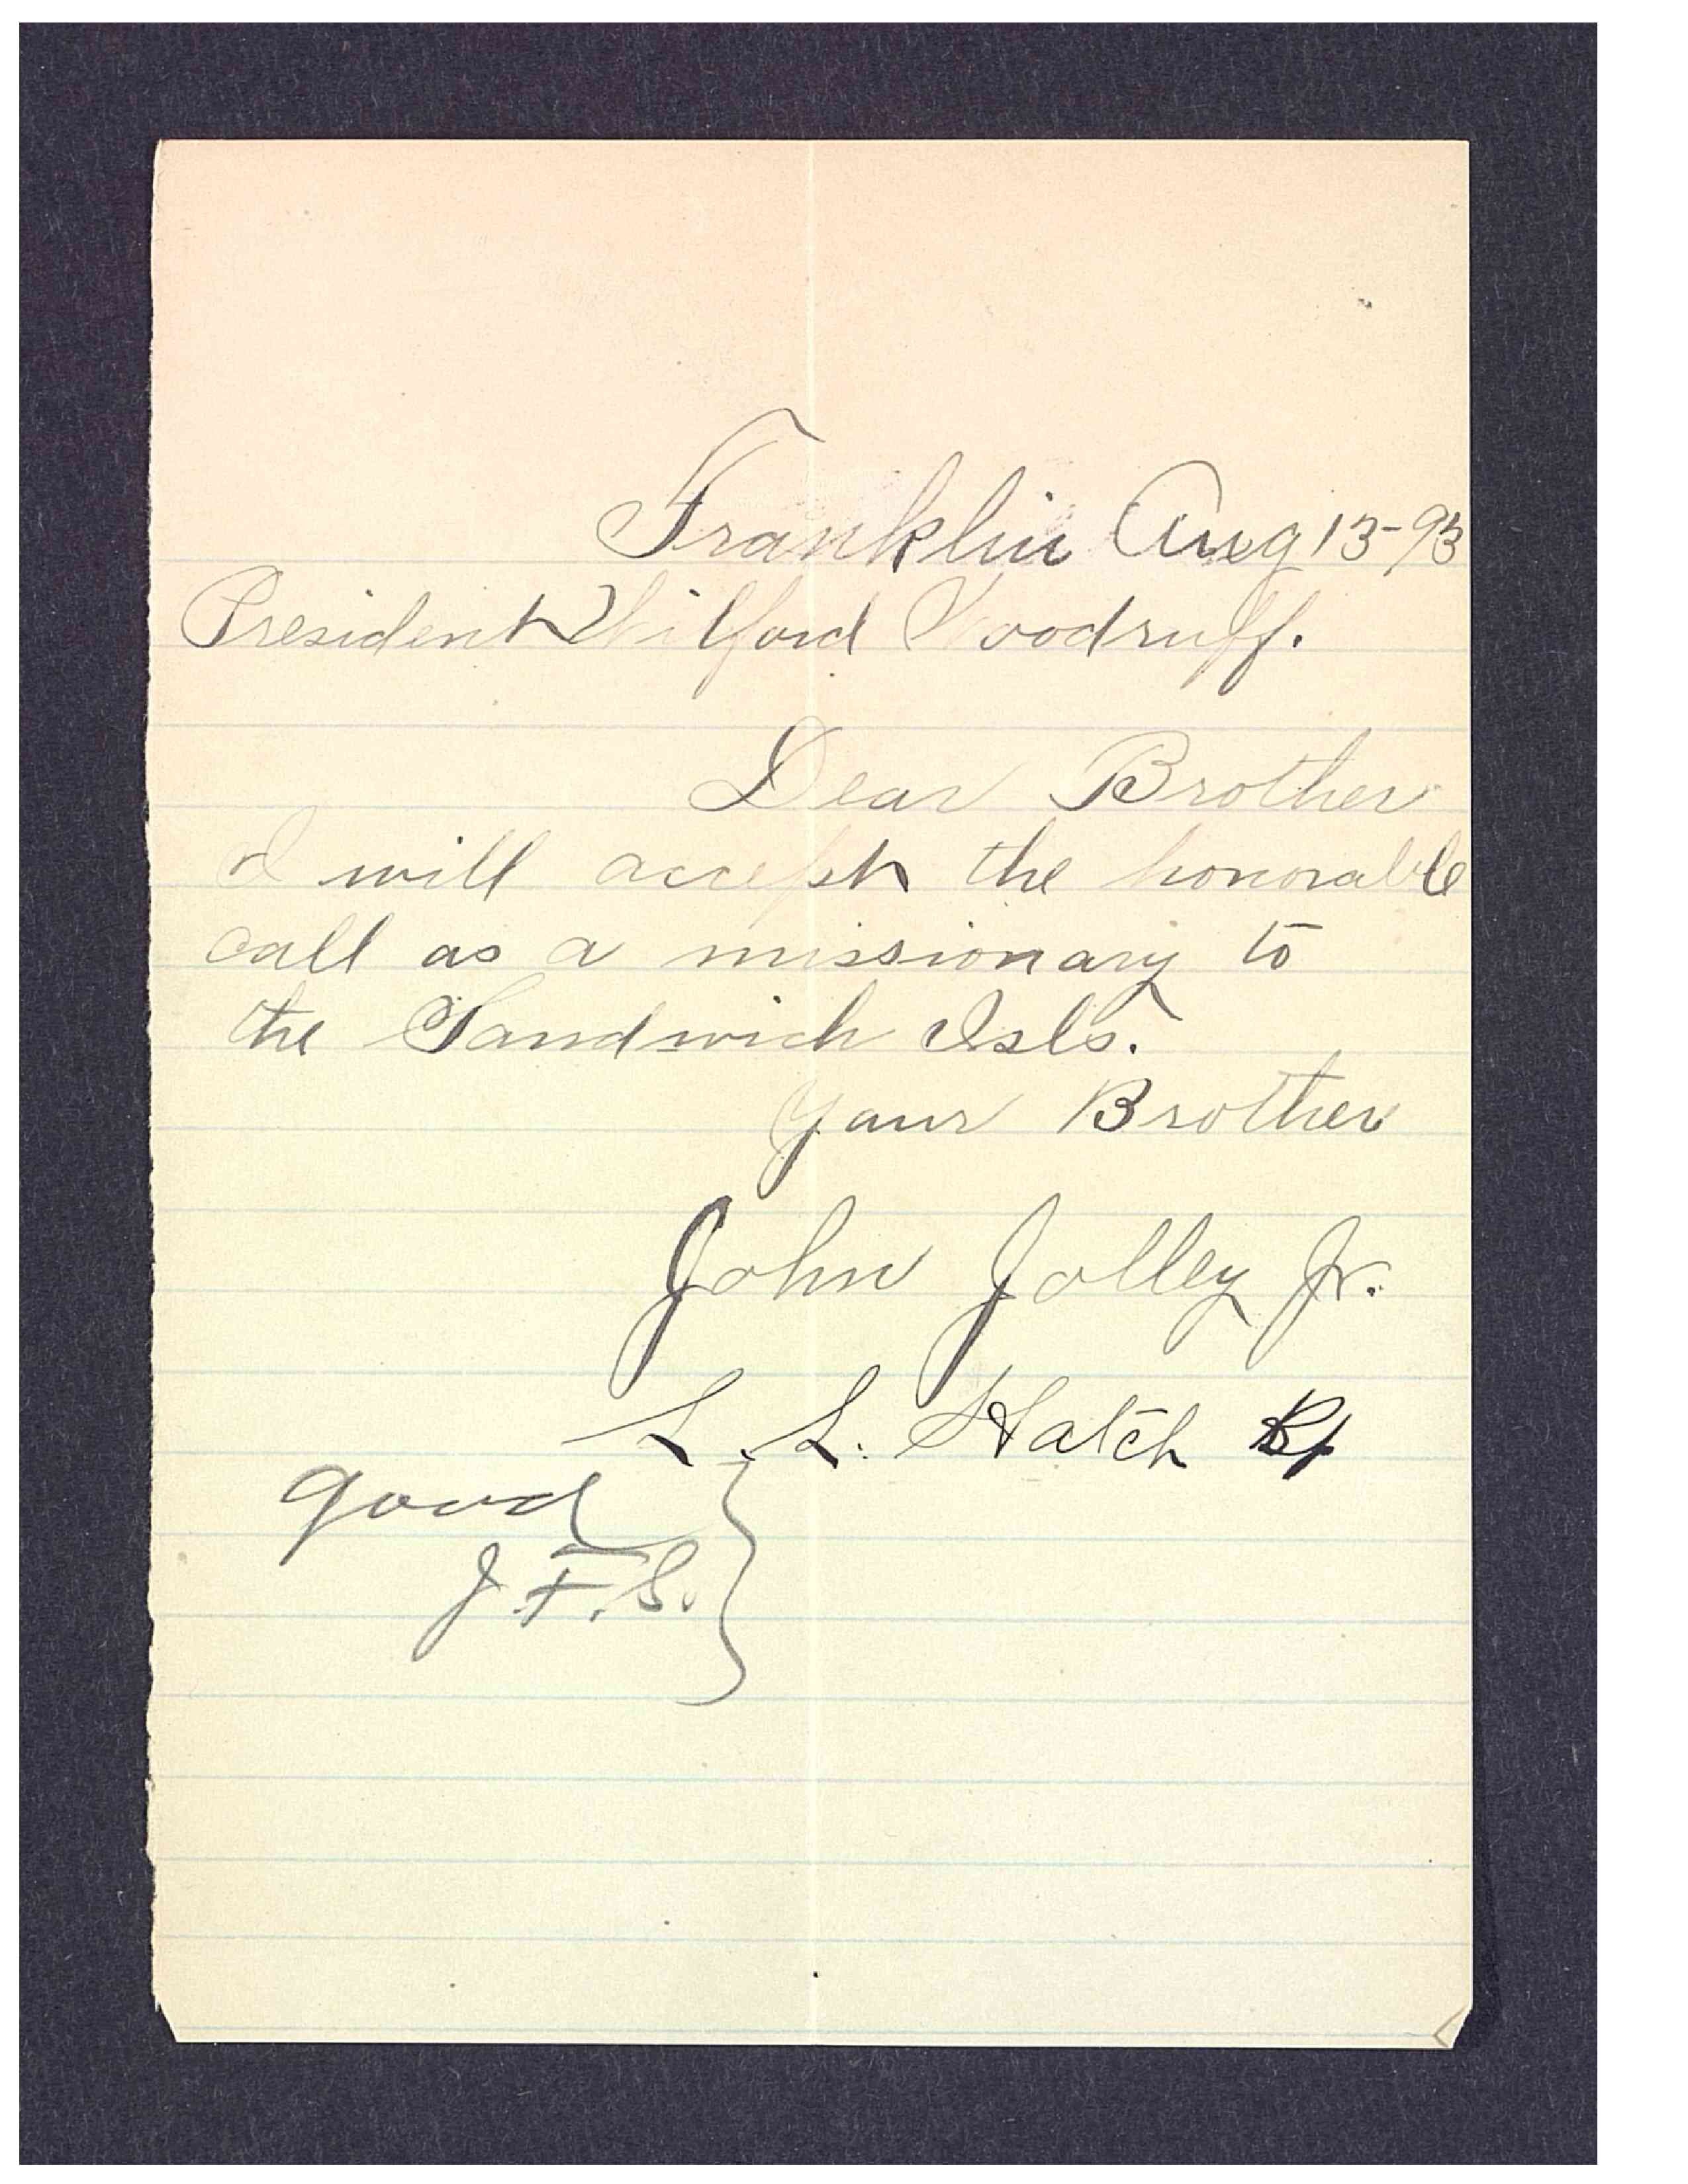 Franklin Aug 13-93
President Wilford Woodruff.
Dear Brother
I will accept the honorable
call as a missionary to
the Sandwich Isls.
Your Brother
John Jolley Jr.
L. L. Hatch Bp
good
J. F. S.